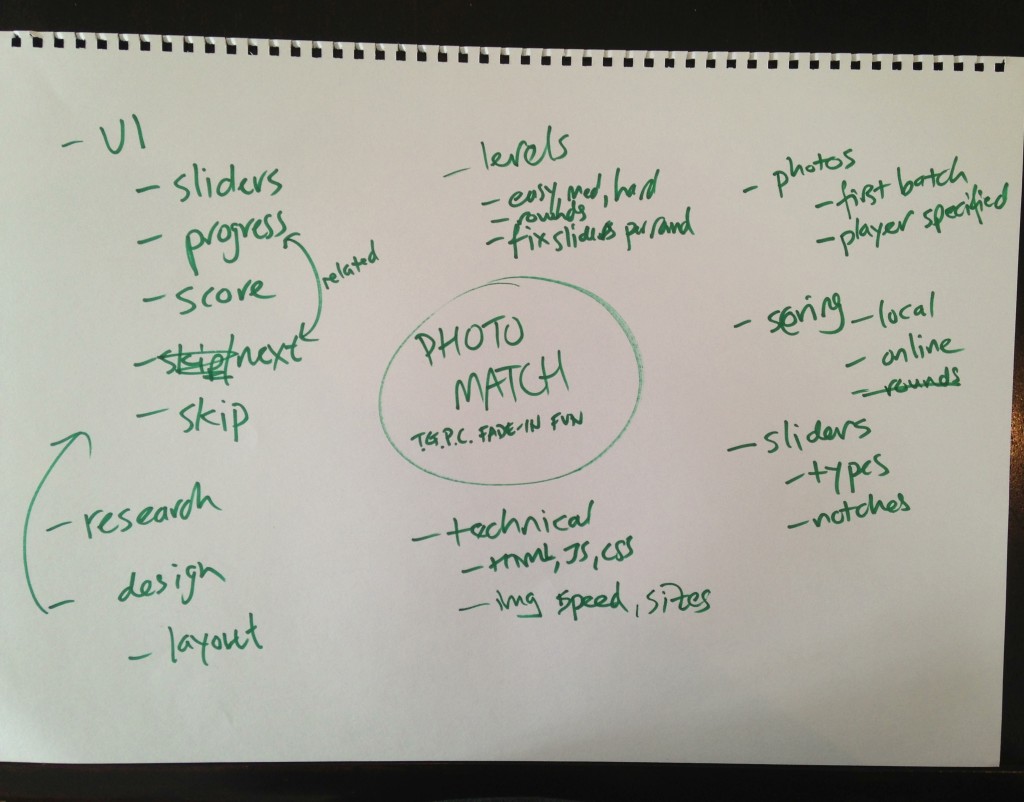 - UI
- sliders
- progress
- score
- skip/next
- skip
related
- research
- design
- layout
- levels
- easy, med, hard
- rounds
- fix sliders per round
PHOTO
MATCH
T.G.P.C. FADE-IN FUN
- technical
- HTML, JS, CSS
- img speed, sizes
- photos
- first batch
- player specified
- local
- online
- rounds
- sliders
- types
- notches